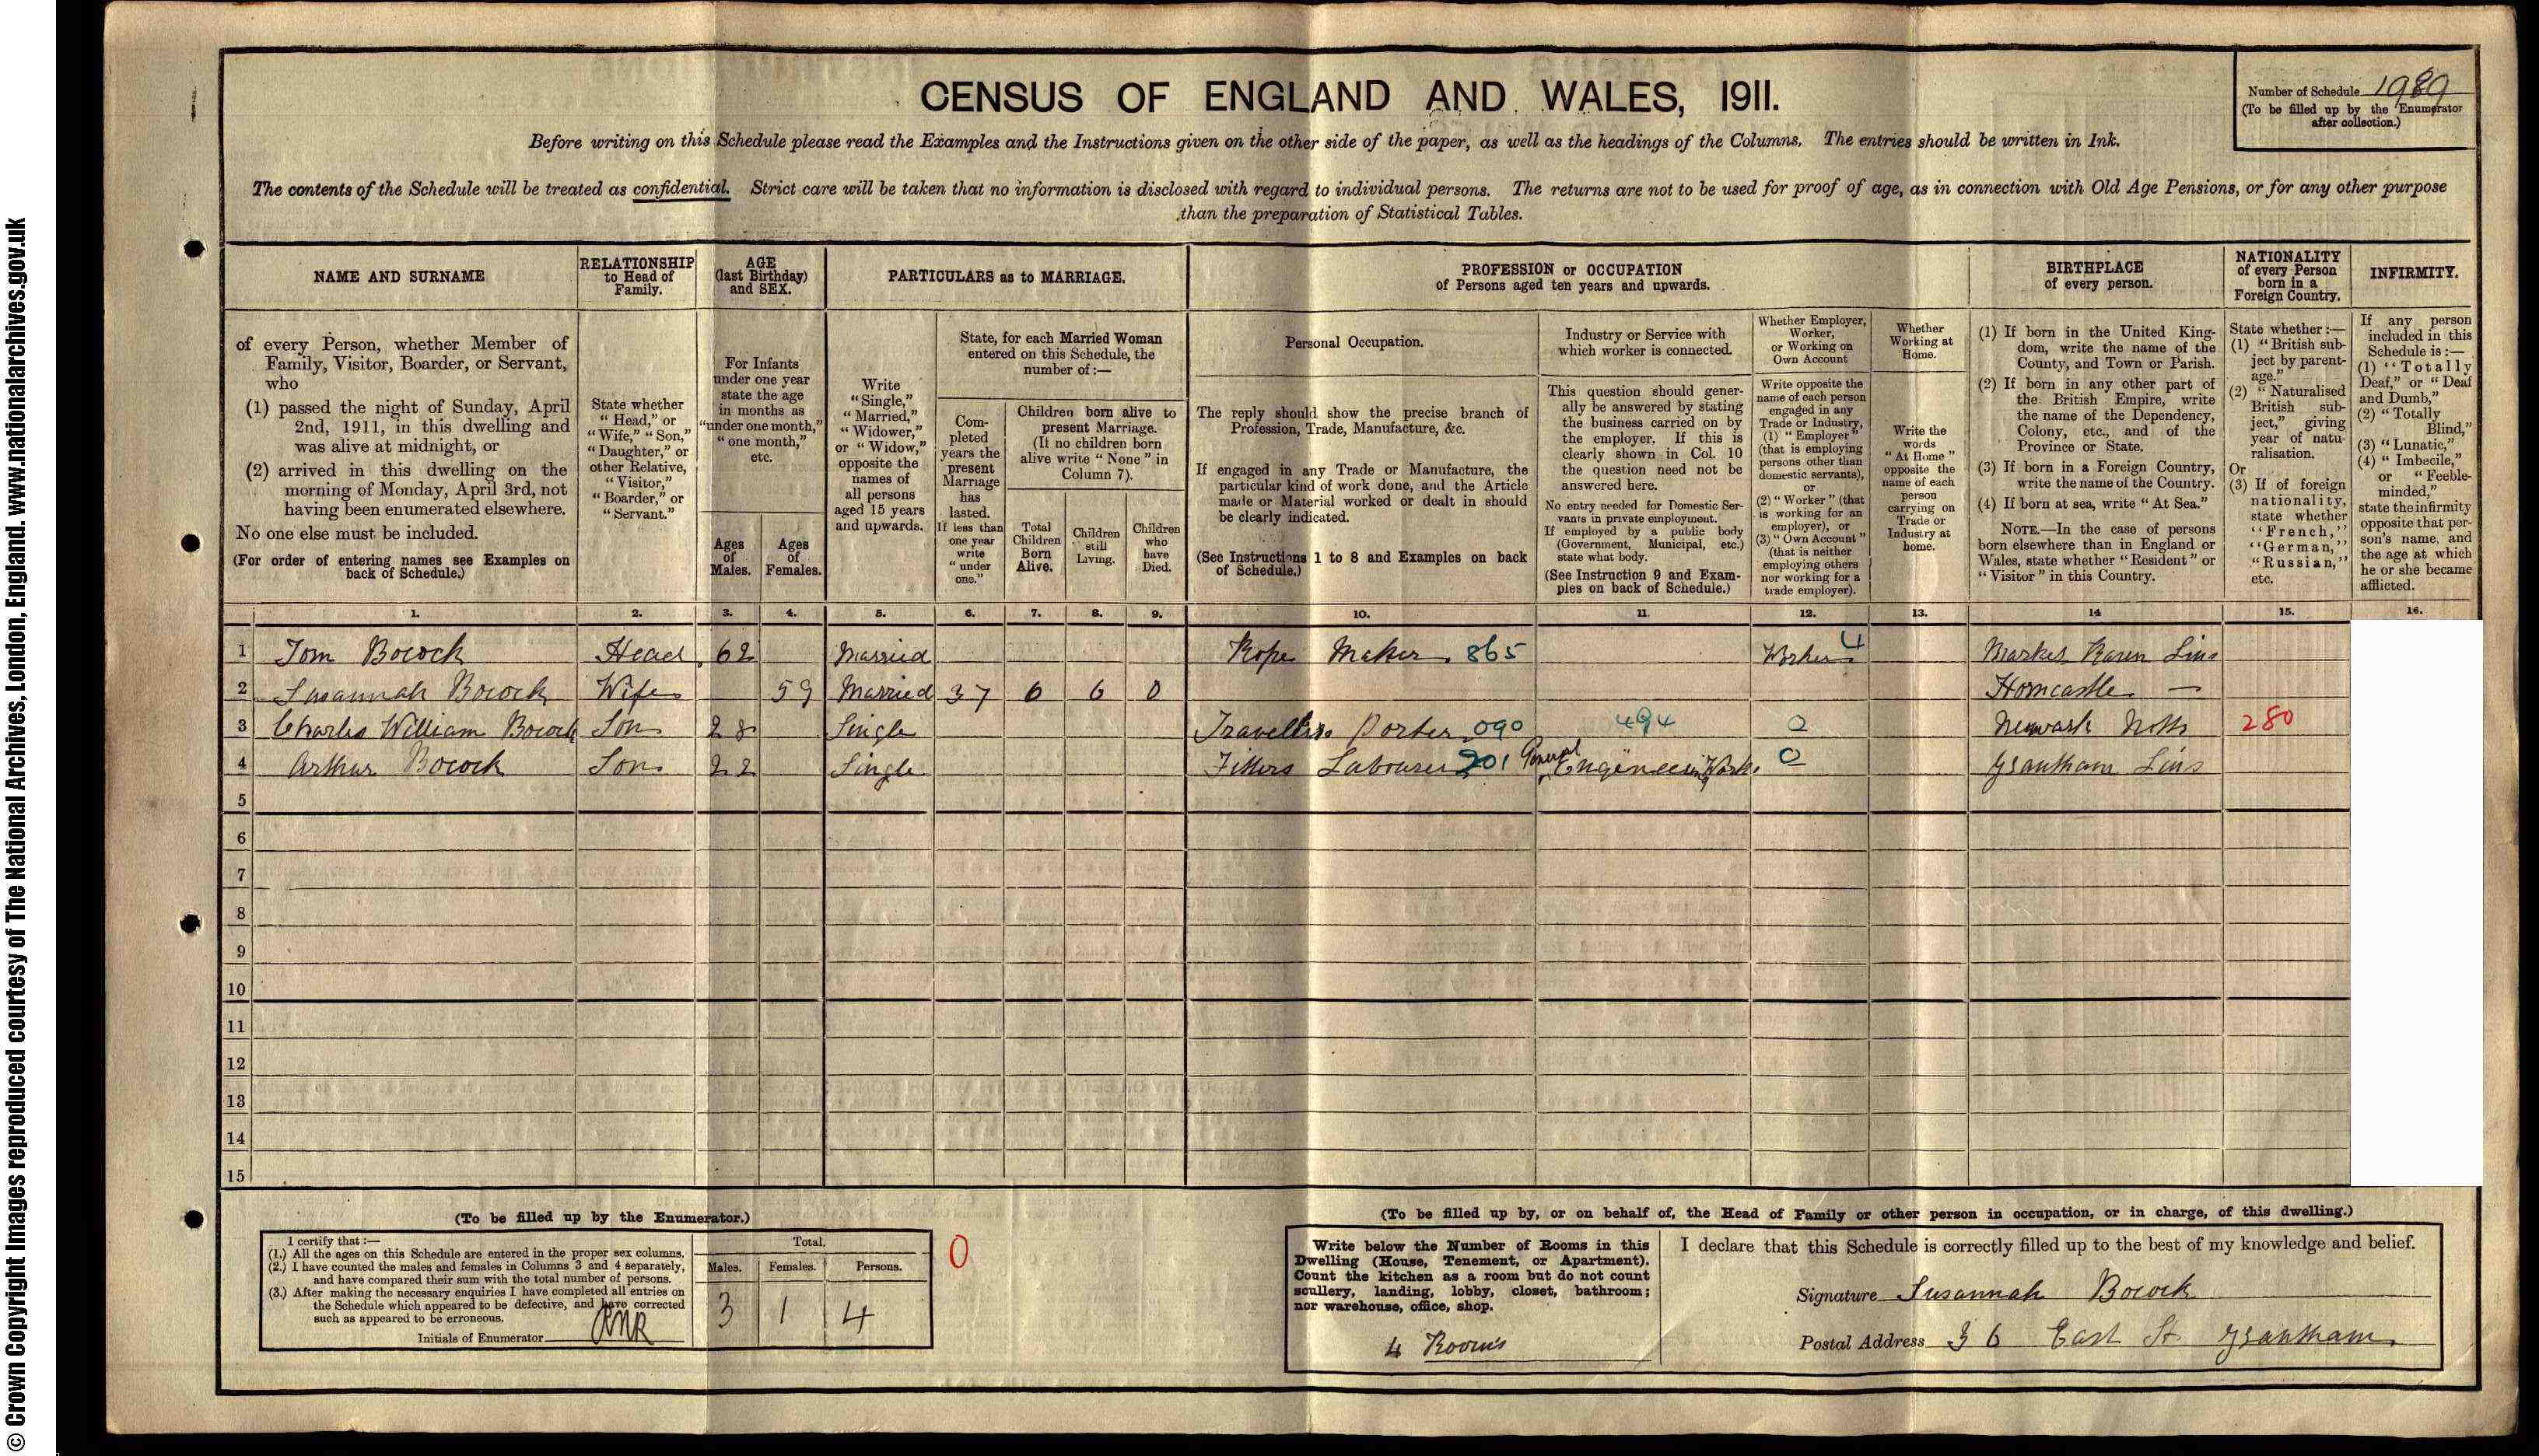 CENSUS OF ENGLAND AND WALES, 1911.
Number of Schedule 1989
(To be filled up by the Enumerator
after collection.)
Before writing on this Schedule please read the Examples and the Instructions given on the other side of the paper, as well as the headings of the Columns. The entries should be written in Ink.
The contents of the Schedule will be treated as confidential. Strict care will be taken that no information is disclosed with regard to individual persons. The returns are not to be used for proof of age, as in connection with Old Age Pensions, or for any other purpose
than the preparation of Statistical Tables.
NAME AND SURNAME
of every Person, whether Member of
Family, Visitor, Boarder, or Servant,
who
(1) passed the night of Sunday, April
2nd, 1911, in this dwelling and
was alive at midnight, or
(2) arrived in this dwelling on the
morning of Monday, April 3rd, not
having been enumerated elsewhere.
No one else must be included.
(For order of entering names see Examples on
back of Schedule.)
1.
RELATIONSHIP
to Head of
Family.
State whether
"Head," or
"Wife," "Son,"
"Daughter," or
other Relative,
"Visitor,"
"Boarder," or
"Servant."
2.
AGE
(last Birthday)
and SEX.
For Infants
under one year
state the age
in months as
"under one month,"
"one month,"
etc.
Ages
of
Males.
3.
Ages
of
Females.
4.
PARTICULARS as to MARRIAGE.
Write
"Single,"
"Married,"
"Widower,"
or "Widow,"
opposite the
names of
all persons
aged 15 years
and upwards.
5.
State, for each Married Woman
entered on this Schedule, the
number of:—
Com-
pleted
years the
present
Marriage
has
lasted.
If less than
one year
write
"under
one."
6.
Children born alive to
present Marriage.
(If no children born
alive write "None" in
Column 7).
Total
Children
Born
Alive.
7.
Children
still
Living.
8.
Children
who
have
Died.
9.
PROFESSION or OCCUPATION
of Persons aged ten years and upwards.
Personal Occupation.
The reply should show the precise branch of
Profession, Trade, Manufacture, &c.
If engaged in any Trade or Manufacture, the
particular kind of work done, and the Article
made or Material worked or dealt in should
be clearly indicated.
(See Instructions 1 to 8 and Examples on back
of Schedule.)
10.
Industry or Service with
which worker is connected.
This question should gener-
ally be answered by stating
the business carried on by
the employer. If this is
clearly shown in Col. 10
the question need not be
answered here.
No entry needed for Domestic Ser-
vants in private employment.
If employed by a public body
(Government, Municipal, etc.)
state what body.
(See Instruction 9 and Exam-
ples on back of Schedule.)
11.
Whether Employer,
Worker,
or Working on
Own Account
Write opposite the
name of each person
engaged in any
Trade or Industry,
(1) "Employer"
(that is employing
persons other than
domestic servants),
or
(2) "Worker" (that
is working for an
employer), or
(3) "Own Account"
(that is neither
employing others
nor working for a
trade employer).
12.
Whether
Working at
Home.
Write the
words
"At Home"
opposite the
name of each
person
carrying on
Trade or
Industry at
home.
13.
BIRTHPLACE
of every person.
(1) If born in the United King-
dom, write the name of the
County, and Town or Parish.
(2) If born in any other part of
the British Empire, write
the name of the Dependency,
Colony, etc., and of the
Province or State.
(3) If born in a Foreign Country,
write the name of the Country.
(4) If born at sea, write "At Sea."
NOTE.—In the case of persons
born elsewhere than in England or
Wales, state whether "Resident" or
"Visitor" in this Country.
14
NATIONALITY
of every Person
born in a
Foreign Country.
State whether:—
(1) "British sub-
ject by parent-
age."
(2) "Naturalised
British sub-
ject," giving
year of natu-
ralisation.
Or
(3) If of foreign
nationality,
state whether
"French,"
"German,"
"Russian,"
etc.
15.
INFIRMITY.
If any person
included in this
Schedule is:—
(1) "Totally
Deaf," or "Deaf
and Dumb,"
(2) "Totally
Blind,"
(3) "Lunatic,"
(4) "Imbecile,"
or "Feeble-
minded,"
state the infirmity
opposite that per-
son's name, and
the age at which
he or she became
afflicted.
16.
1 Tom Bocock Head 62 Married Rope Maker 865 Worker 4 Market Rasen Lins
2 Susannah Bocock Wife 59 Married 37 6 6 0 Horncastle —
3 Charles William Bocock Son 28 Single Travellers Porter 090 494 0 Newark Notts 280
4 Arthur Bocock Son 22 Single Fitters Labourer 201 General Engineering Work. 0 Grantham Lins
5
6
7
8
9
10
11
12
13
14
15
(To be filled up by the Enumerator.)
I certify that:—
(1.) All the ages on this Schedule are entered in the proper sex columns.
(2.) I have counted the males and females in Columns 3 and 4 separately,
and have compared their sum with the total number of persons.
(3.) After making the necessary enquiries I have completed all entries on
the Schedule which appeared to be defective, and have corrected
such as appeared to be erroneous.
Initials of Enumerator
Total.
Males. Females. Persons.
3 1 4
0
(To be filled up by, or on behalf of, the Head of Family or other person in occupation, or in charge, of this dwelling.)
Write below the Number of Rooms in this
Dwelling (House, Tenement, or Apartment).
Count the kitchen as a room but do not count
scullery, landing, lobby, closet, bathroom;
nor warehouse, office, shop.
4 Rooms
I declare that this Schedule is correctly filled up to the best of my knowledge and belief.
Signature Susannah Bocock
Postal Address 36 East St Grantham.
© Crown Copyright Images reproduced courtesy of The National Archives, London, England. www.nationalarchives.gov.uk